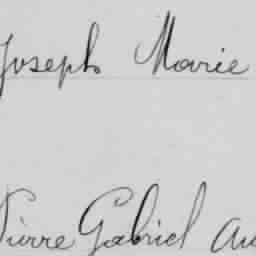 Joseph Marie
Pierre Gabriel Au